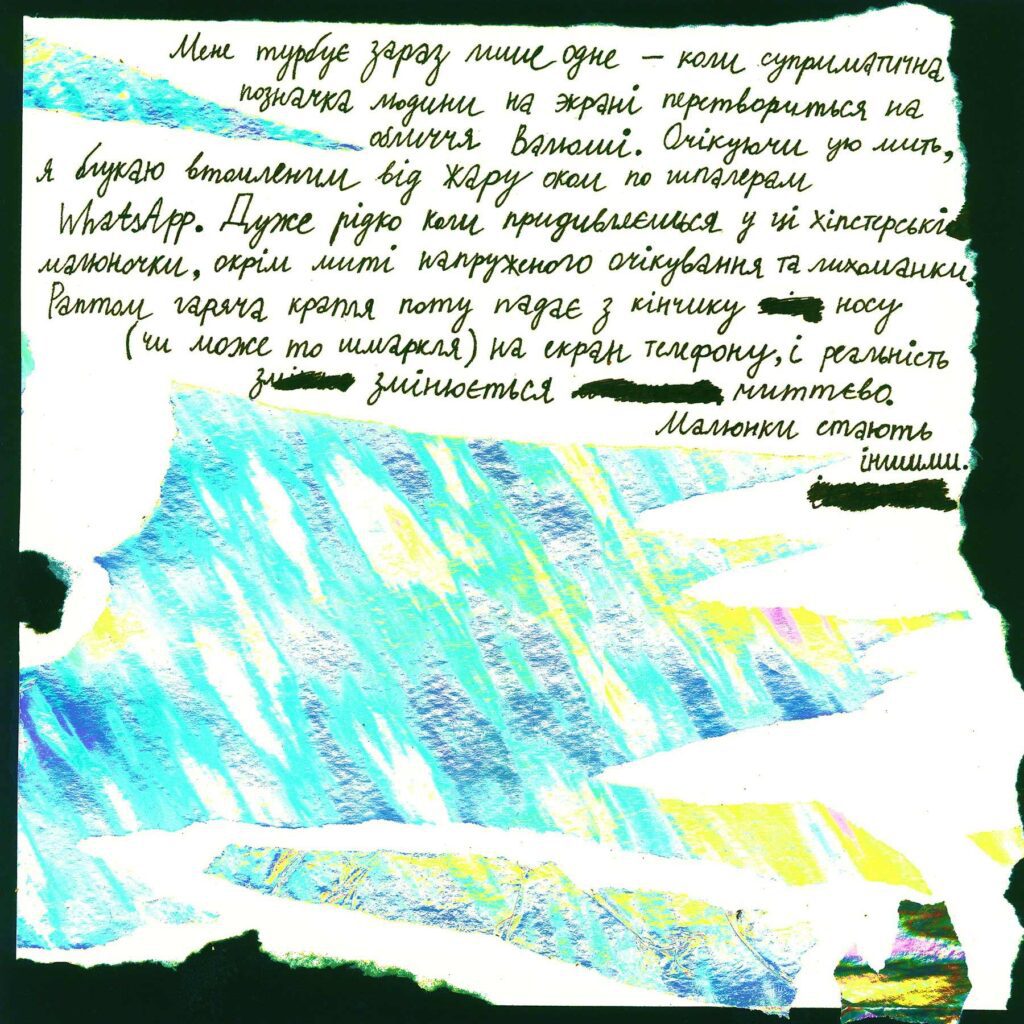 Мене турбує зараз лише одне – коли суприматична
позначка людини на экрані перетвориться на
обличчя Валюші. Очікуючи цю мить,
я блукаю втомленим від жару оком по шпалерам
WhatsApp. Дуже рідко коли придивляєшься у ці хіпстерські
малюночки, окрім миті напруженого очікування та лихоманки.
Раптом гаряча крапля поту падає з кінчику носу
(чи може то шмаркля) на екран телефону, і реальність
змінюється миттєво.
Малюнки стають
іншими.